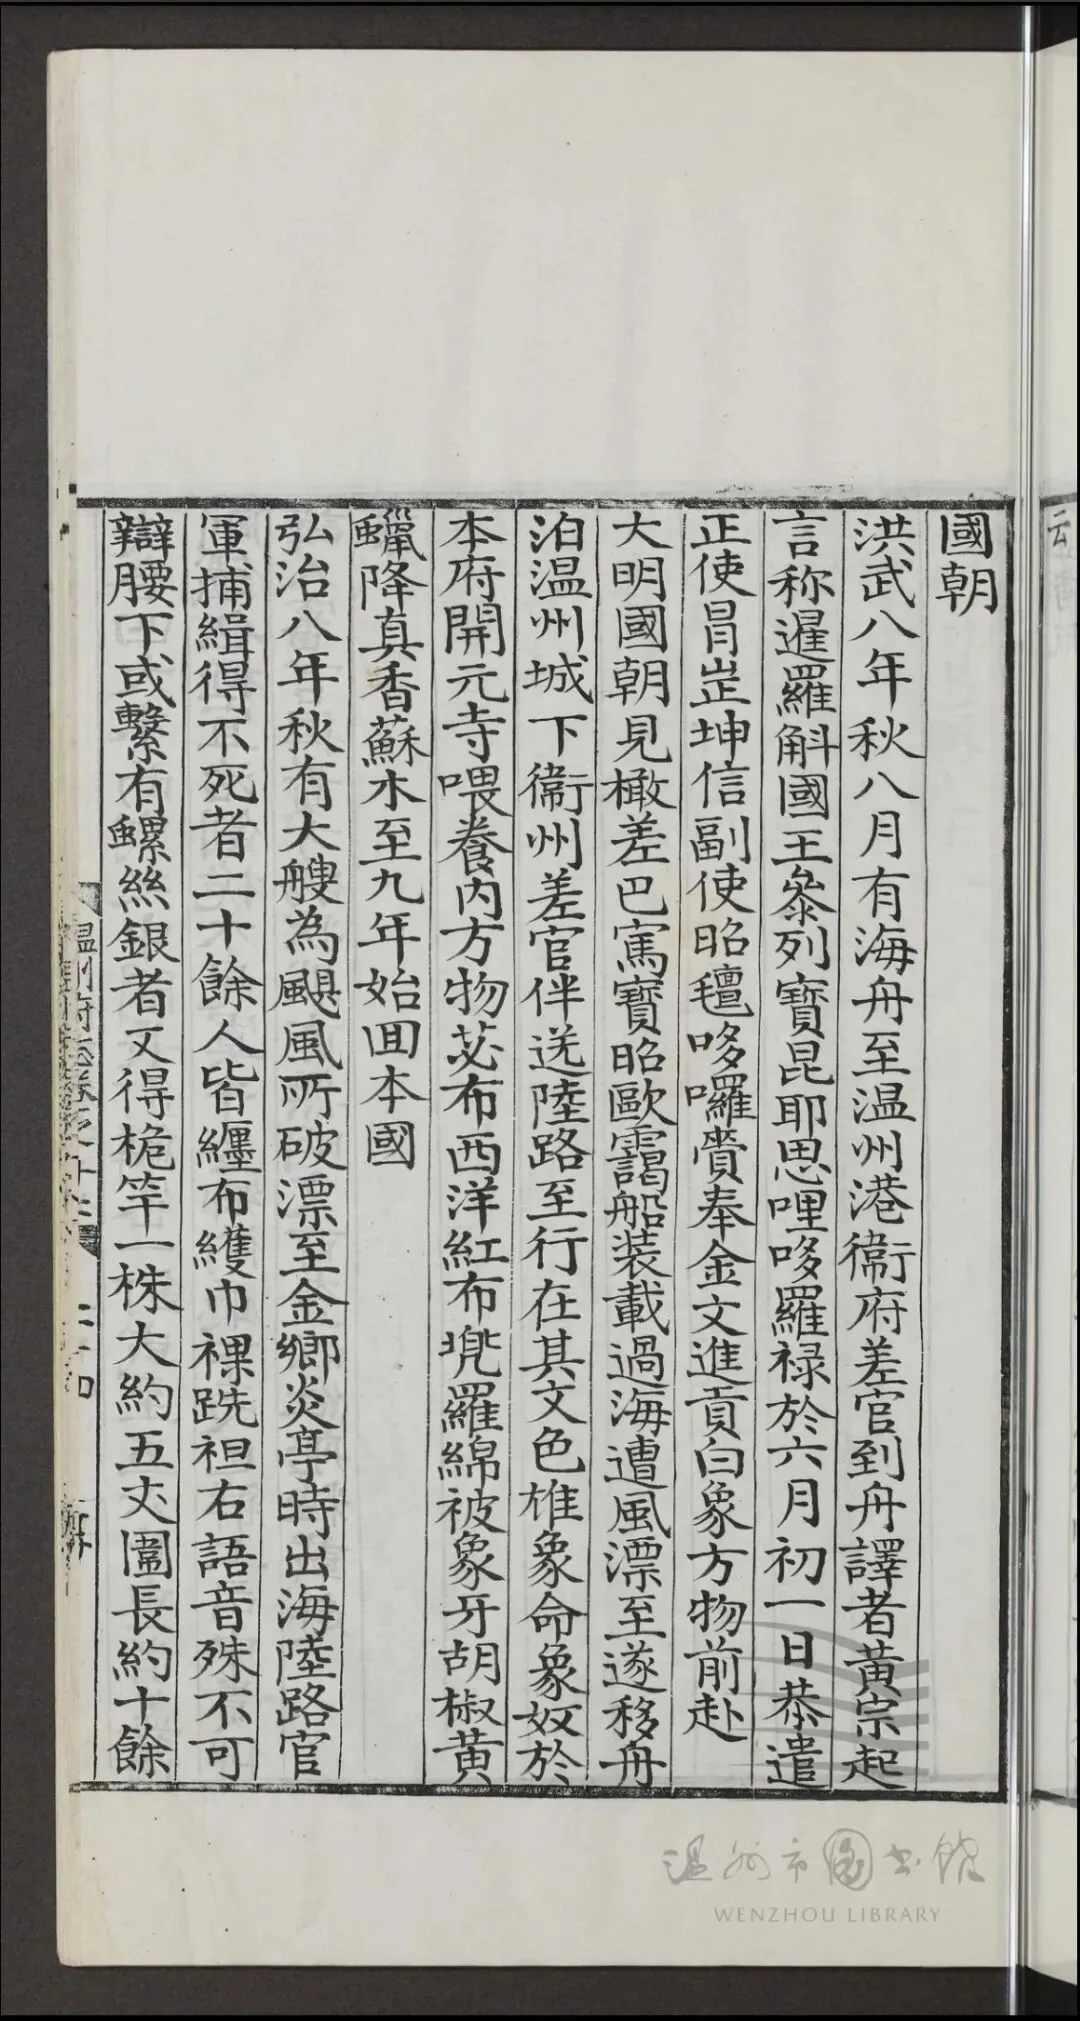 國朝
洪武八年秋八月有海舟至温州港衞府差官到舟譯者黄宗起
言称暹羅斛國王叅列寶昆耶思哩哆羅禄於六月初一日恭遣
正使冐岦坤信副使昭氊哆囉賫奉金文進貢白象方物前赴
大明國朝見橄差巴寯寶昭歐靄船装載過海遭風漂至遂移舟
泊温州城下衞州差官伴送陸路至行在其文色雄象命象奴於
本府開元寺喂養内方物苾布西洋紅布兠羅綿被象牙胡椒黄
蠟降真香蘇木至九年始囬本國
弘治八年秋有大艘為颶風所破漂至金鄉炎亭時出海陸路官
軍捕緝得不死者二十餘人皆纒布䌌巾裸跣袒右語音殊不可
辯腰下或繫有螺絲銀者又得桅竿一株大約五丈圍長約十餘
温州府志卷之十七
二十四
云
温州市图书馆
WENZHOU LIBRARY